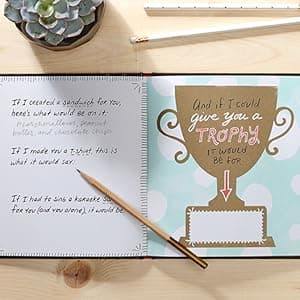 If I created a sandwich for you,
here's what would be on it:
marshmallows, peanut
butter, and chocolate chips
If I made you a T-shirt, this is
what it would say:
If I had to sing a karaoke
for you (and you alone), it would be
And if I could
give you a
TROPHY
IT WOULD
BE FOR